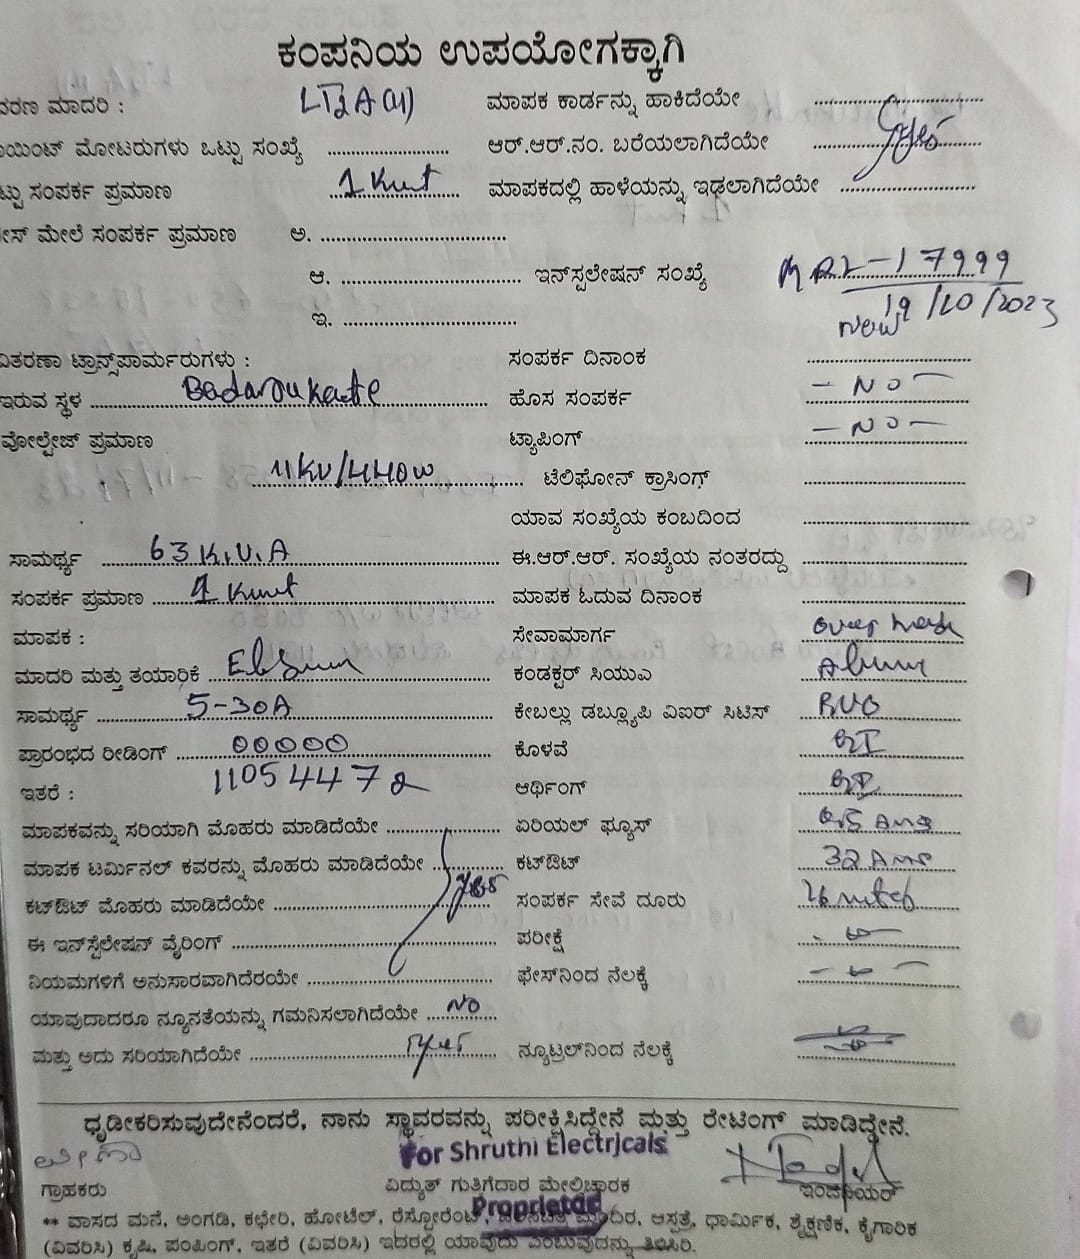 ಕಂಪನಿಯ ಉಪಯೋಗಕ್ಕಾಗಿ
ವರಣ ಮಾದರಿ : ಮಾಪಕ ಕಾರ್ಡನ್ನು ಹಾಕಿದೆಯೇ
ಯಿಂಟ್ ಮೋಟರುಗಳು ಒಟ್ಟು ಸಂಖ್ಯೆ ಆರ್.ಆರ್.ನಂ. ಬರೆಯಲಾಗಿದೆಯೇ
ಟ್ಟು ಸಂಪರ್ಕ ಪ್ರಮಾಣ ಮಾಪಕದಲ್ಲಿ ಹಾಳೆಯನ್ನು ಇಢಲಾಗಿದೆಯೇ
ೇಸ್ ಮೇಲೆ ಸಂಪರ್ಕ ಪ್ರಮಾಣ ಅ.
ಆ. ಇನ್‌ಸ್ಟಲೇಷನ್ ಸಂಖ್ಯೆ MRL-17999
19/10/2023
ಇ. New
ವಿತರಣಾ ಟ್ರಾನ್ಸ್‌ಪಾರ್ಮರುಗಳು : ಸಂಪರ್ಕ ದಿನಾಂಕ
ಇರುವ ಸ್ಥಳ Badarukatte ಹೊಸ ಸಂಪರ್ಕ - NO -
ವೋಲ್ಟೇಜ್ ಪ್ರಮಾಣ ಟ್ಯಾಪಿಂಗ್ - NO -
11KV/440W ಟೆಲಿಫೋನ್ ಕ್ರಾಸಿಂಗ್
ಯಾವ ಸಂಖ್ಯೆಯ ಕಂಬದಿಂದ
ಸಾಮರ್ಥ್ಯ 63 K.V.A ಈ.ಆರ್.ಆರ್. ಸಂಖ್ಯೆಯ ನಂತರದ್ದು
ಸಂಪರ್ಕ ಪ್ರಮಾಣ ಮಾಪಕ ಓದುವ ದಿನಾಂಕ
ಮಾಪಕ : ಸೇವಾಮಾರ್ಗ over head
ಮಾದರಿ ಮತ್ತು ತಯಾರಿಕೆ ಕಂಡಕ್ಟರ್ ಸಿಯುಎ
ಸಾಮರ್ಥ್ಯ 5-30A ಕೇಬಲ್ಲು ಡಬ್ಲ್ಯೂಪಿ ವಿಐರ್ ಸಿಟಿಸ್
ಪ್ರಾರಂಭದ ರೀಡಿಂಗ್ 00000 ಕೊಳವೆ GI
ಇತರೆ : 11054472 ಆರ್ಥಿಂಗ್ GI
ಮಾಪಕವನ್ನು ಸರಿಯಾಗಿ ಮೊಹರು ಮಾಡಿದೆಯೇ ಏರಿಯಲ್ ಫ್ಯೂಸ್
ಮಾಪಕ ಟರ್ಮಿನಲ್ ಕವರನ್ನು ಮೊಹರು ಮಾಡಿದೆಯೇ ಕಟ್‌ಔಟ್ 32 Ams
ಕಟ್‌ಔಟ್ ಮೊಹರು ಮಾಡಿದೆಯೇ yes ಸಂಪರ್ಕ ಸೇವೆ ದೂರು
ಈ ಇನ್‌ಸ್ಟೆಲೇಷನ್ ವೈರಿಂಗ್ ಪರೀಕ್ಷೆ
ನಿಯಮಗಳಿಗೆ ಅನುಸಾರವಾಗಿದೆರಯೇ ಫೇಸ್‌ನಿಂದ ನೆಲಕ್ಕೆ
ಯಾವುದಾದರೂ ನ್ಯೂನತೆಯನ್ನು ಗಮನಿಸಲಾಗಿದೆಯೇ NO
ಮತ್ತು ಅದು ಸರಿಯಾಗಿದೆಯೇ ನ್ಯೂಟ್ರಲ್‌ನಿಂದ ನೆಲಕ್ಕೆ
ಧೃಡೀಕರಿಸುವುದೇನೆಂದರೆ, ನಾನು ಸ್ಥಾವರವನ್ನು ಪರೀಕ್ಷಿಸಿದ್ದೇನೆ ಮತ್ತು ರೇಟಿಂಗ್ ಮಾಡಿದ್ದೇನೆ.
For Shruthi Electricals
ಗ್ರಾಹಕರು ವಿದ್ಯುತ್ ಗುತಿಗೆದಾರ ಮೇಲ್ವಿಚಾರಕ ಇಂಜಿನಿಯರ್
Proprietor
** ವಾಸದ ಮನೆ, ಅಂಗಡಿ, ಕಛೇರಿ, ಹೋಟೆಲ್, ರೆಸ್ಟೋರೆಂಟ್, ಆಸ್ಪತ್ರೆ, ಧಾರ್ಮಿಕ, ಶೈಕ್ಷಣಿಕ, ಕೈಗಾರಿಕ
(ವಿವರಿಸಿ) ಕೃಷಿ, ಪಂಪಿಂಗ್, ಇತರೆ (ವಿವರಿಸಿ) ಇದರಲ್ಲಿ ಯಾವುದು ಎಂಬುವುದನ್ನು ತಿಳಿಸಿರಿ.